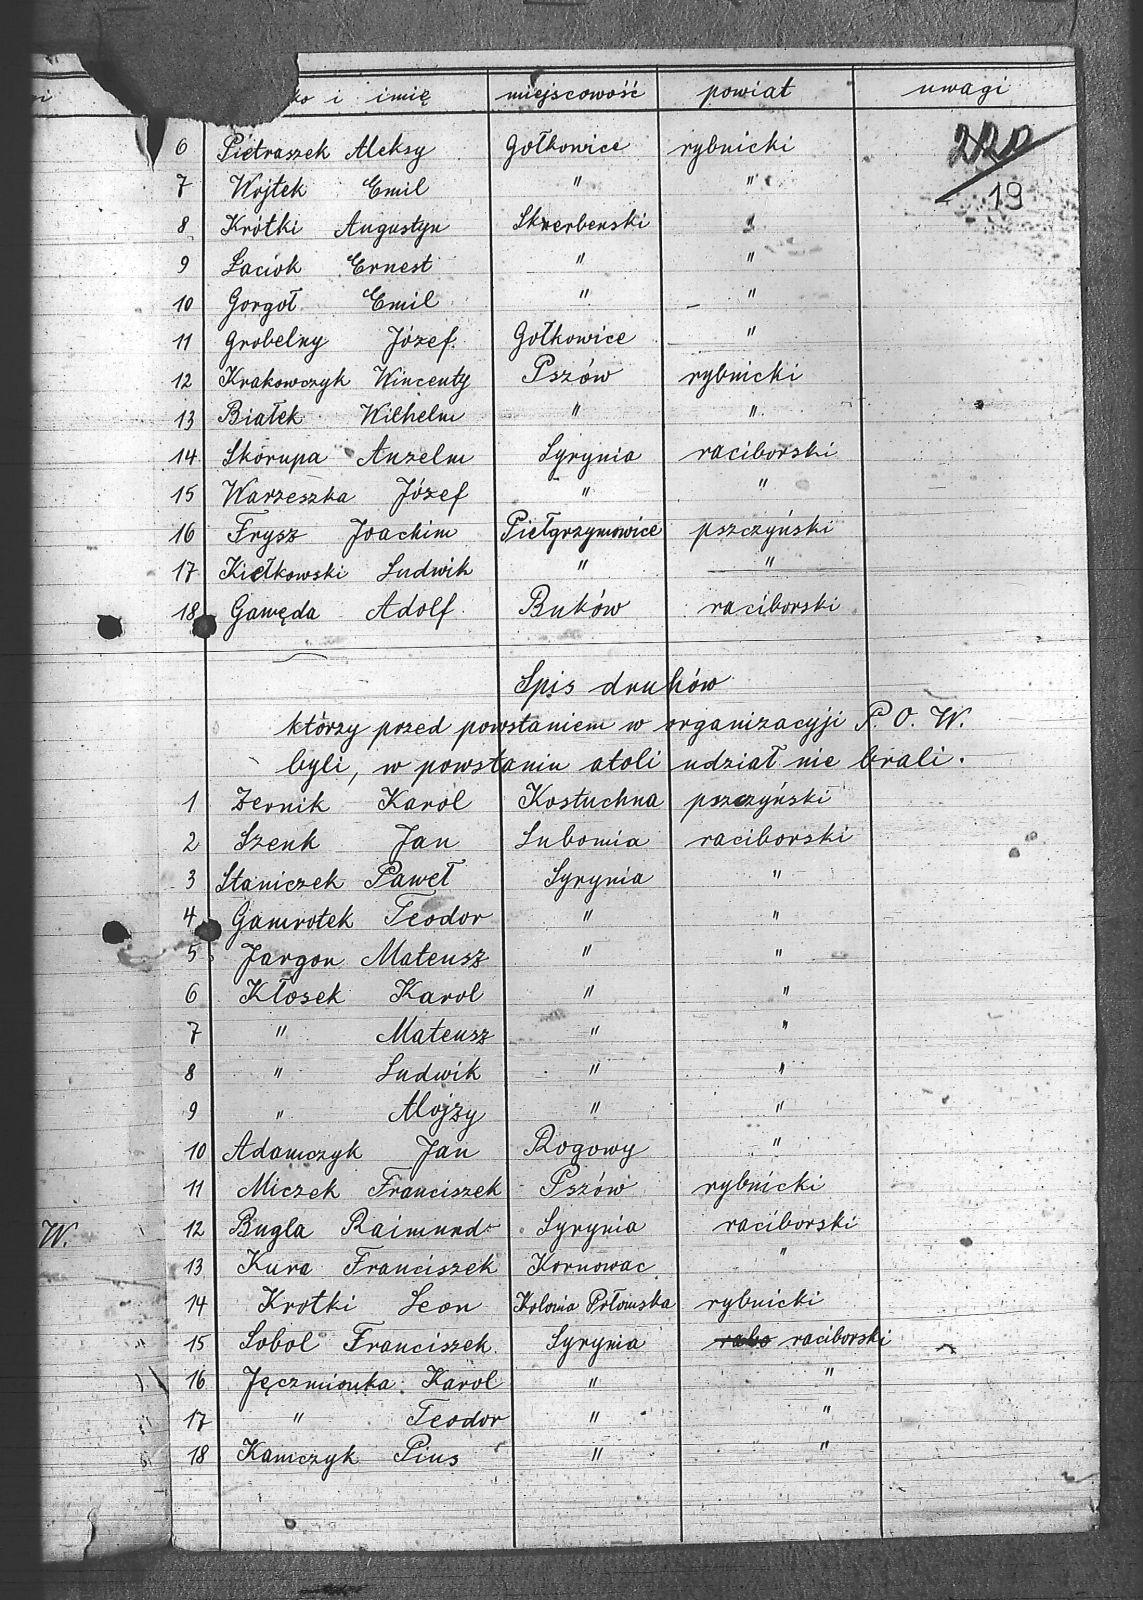 ko i imię miejscowość powiat uwagi
6 Pietraszek Aleksy Gołkowice rybnicki
7 Wojtek Emil " "
19
8 Krótki Augustyn Skrerbenski "
9 Laciok Ernest " "
10 Gorgoł Emil " "
11 Grobelny Józef. Gołkowice "
12 Krakowczyk Wincenty Pszów rybnicki
13 Białek Wilhelm " "
14 Skorupa Anzelm Syrynia raciborski
15 Warzeszka Józef " "
16 Frysz Joachim Piełgrzymowice pszczyński
17 Kiełkowski Ludwik " "
18 Gawęda Adolf. Buków raciborski
Spis druhów
którzy przed powstaniem w organizacyji P. O. W.
byli, w powstaniu atoli udział nie brali.
1 Zernik Karol Kostuchna pszczyński
2 Szenk Jan Lubomia raciborski
3 Staniczek Paweł Syrynia "
4 Gamrotek Teodor " "
5 Jargon Mateusz " "
6 Kłosek Karol " "
7 " Mateusz " "
8 " Ludwik " "
9 " Alojzy " "
10 Adamczyk Jan Rogowy "
11 Miczek Franciszek Pszów rybnicki
W. 12 Bugla Raimund Syrynia raciborski
13 Kura Franciszek Kornowac "
14 Krotki Leon Kolonia Połomska rybnicki
15 Sobol Franciszek Syrynia raciborski
16 Jęczmionka Karol " "
17 " Teodor " "
18 Kamczyk Pius " "